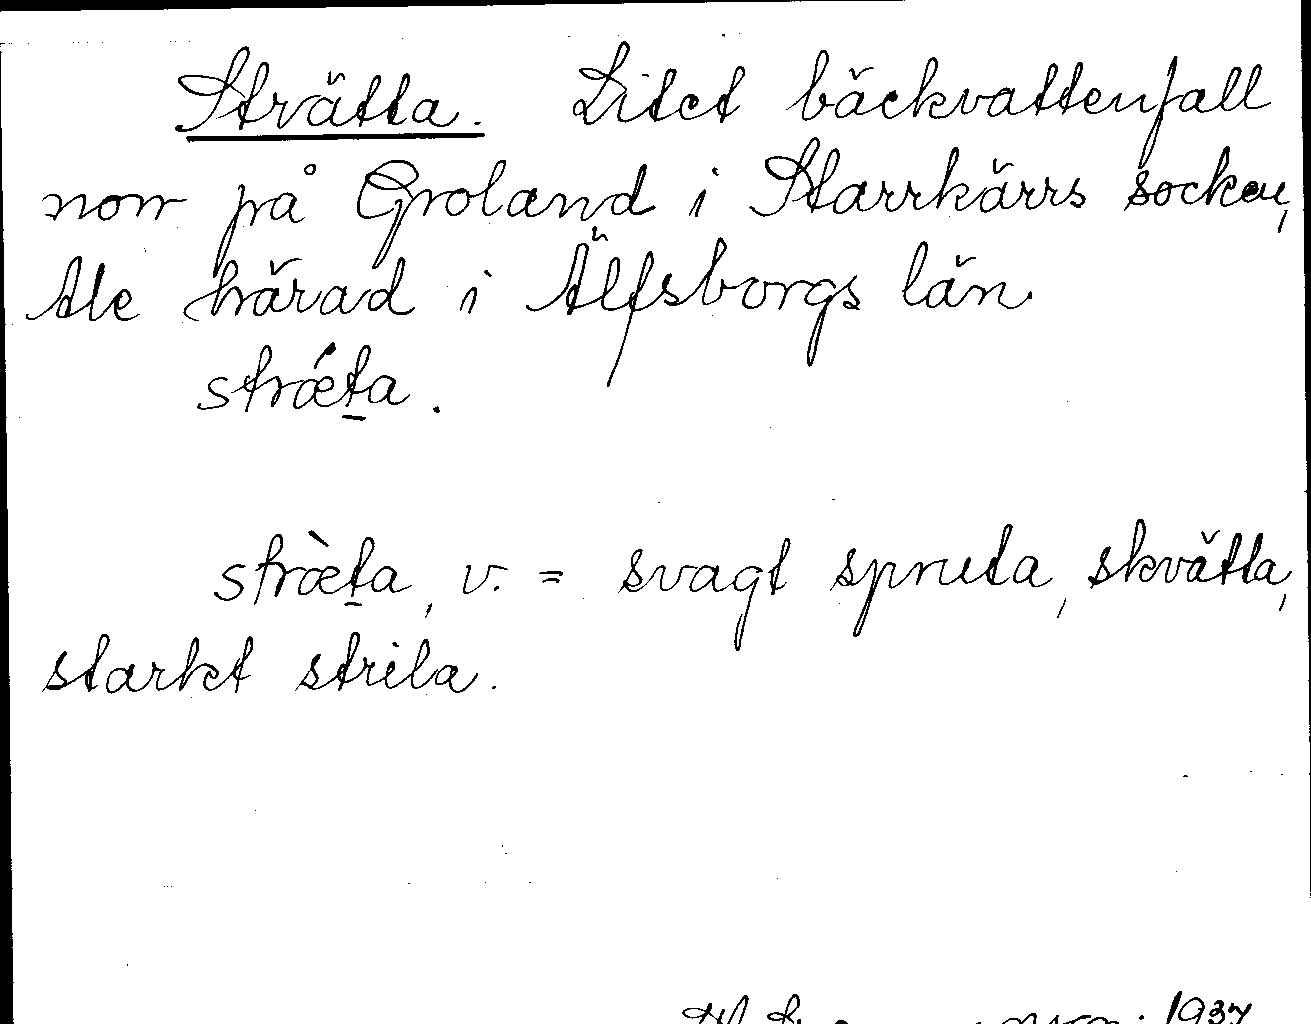 Strätta. Litet bäckvattenfall
norr på Groland i Starrkärrs socken,
Ale härad i Älfsborgs län.
strǽṯa.
stræ̀ṯa, v. = svagt spruta, skvätta,
starkt strila.
1937